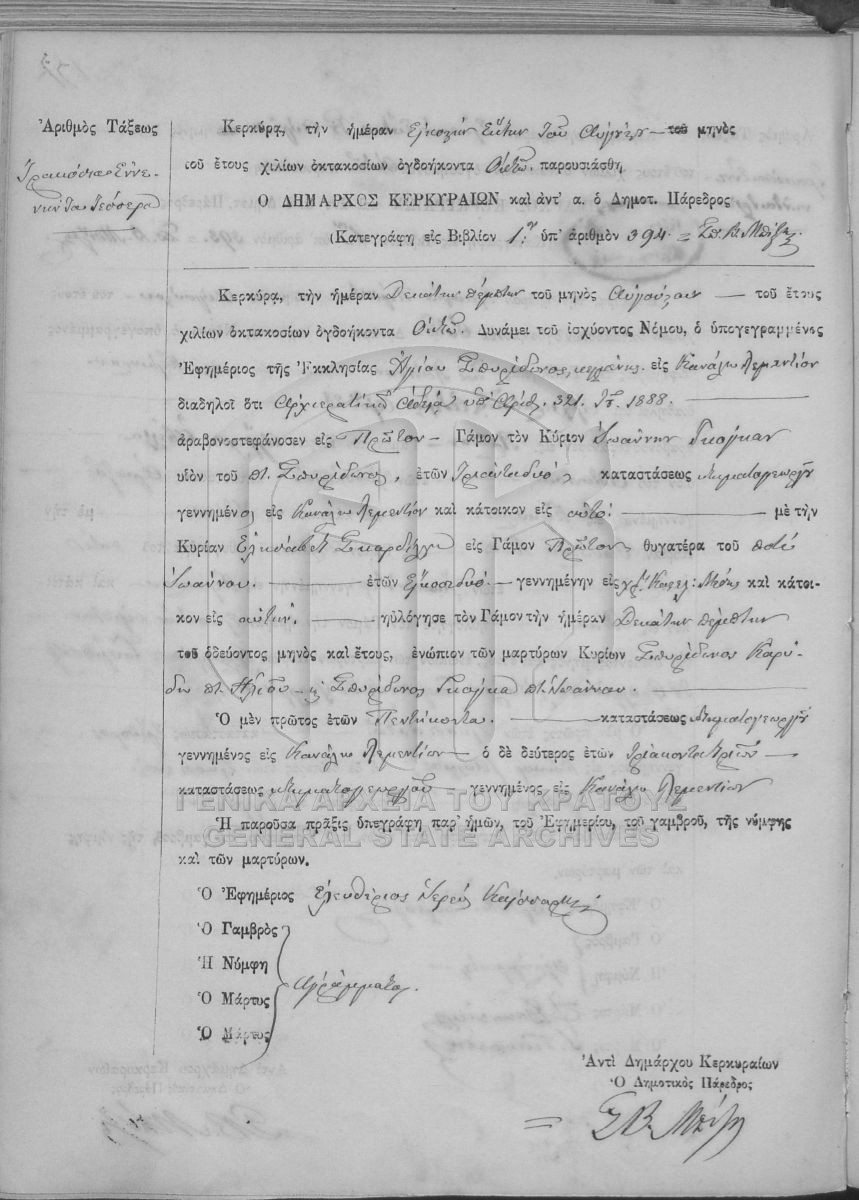 Ἀριθμὸς Τάξεως
Τριακόσια Ἐννε-
νήντα Τέσσερα
Κερκύρᾳ, τὴν ἡμέραν Εἰκοστὴν Ἕκτην τοῦ Αὐγούστου τοῦ μηνὸς
τοῦ ἔτους χιλίων ὀκτακοσίων ὀγδοήκοντα Ὀκτώ. παρουσιάσθη
Ο ΔΗΜΑΡΧΟΣ ΚΕΡΚΥΡΑΙΩΝ καὶ ἀντ' α. ὁ Δημοτ. Πάρεδρος
(Κατεγράφη εἰς Βιβλίον 1ον ὑπ' ἀριθμὸν 394 = Σπ. Β.
Κερκύρᾳ, τὴν ἡμέραν Δεκάτην πέμπτην τοῦ μηνὸς Αὐγούστου — τοῦ ἔτους
χιλίων ὀκτακοσίων ὀγδοήκοντα Ὀκτώ. Δυνάμει τοῦ ἰσχύοντος Νόμου, ὁ ὑπογεγραμμένος
Ἐφημέριος τῆς Ἐκκλησίας Ἁγίου Σπυρίδωνος, κειμένης εἰς Κανάλια Λεμεντίου
διαδηλοῖ ὅτι Ἀρχιερατικῇ Ἀδείᾳ ὑπ' Ἀριθ. 321. 1888.
ἀραβονοστεφάνοσεν εἰς Πρῶτον — Γάμον τὸν Κύριον Ἰωάννην Γκόγκαν
υἱὸν τοῦ π. Σπυρίδωνος, ἐτῶν Τριάντα δυό, καταστάσεως κτηματογεωργοῦ
γεννημένος εἰς Κανάλια Λεμεντίου καὶ κάτοικον εἰς αὐτό. — μὲ τὴν
Κυρίαν Ἐλισάβετ Σκορδίλλη εἰς Γάμον Πρῶτον θυγατέρα τοῦ ποτὲ
Ἰωάννου. — ἐτῶν Εἴκοσι δυό. — γεννημένην εἰς καὶ κάτοι-
κον εἰς αὐτήν. — ηὐλόγησε τὸν Γάμον τὴν ἡμέραν Δεκάτην πέμπτην
τοῦ ὁδεύοντος μηνὸς καὶ ἔτους, ἐνώπιον τῶν μαρτύρων Κυρίων Σπυρίδωνος Καρύ-
δη π. Ἠλίου — κ. Σπυρίδωνος Γκόγκα π. Ἰωάννου.
Ὁ μὲν πρῶτος ἐτῶν Πεντήκοντα. — καταστάσεως κτηματογεωργοῦ
γεννημένος εἰς Κανάλια Λεμεντίου — ὁ δὲ δεύτερος ἐτῶν Τριάκοντα τριῶν —
καταστάσεως κτηματογεωργοῦ — γεννημένος εἰς Κανάλια Λεμεντίου
ΓΕΝΙΚΑ ΑΡΧΕΙΑ ΤΟΥ ΚΡΑΤΟΥΣ
Ἡ παροῦσα πρᾶξις ὑπεγράφη παρ' ἡμῶν, τοῦ Ἐφημερίου, τοῦ γαμβροῦ, τῆς νύμφης
GENERAL STATE ARCHIVES
καὶ τῶν μαρτύρων.
Ὁ Ἐφημέριος Ἐλευθέριος Ἱερεὺς
Ὁ Γαμβρὸς
Ἡ Νύμφη
Ἀγράμματοι.
Ὁ Μάρτυς
Ὁ Μάρτυς
Ἀντὶ Δημάρχου Κερκυραίων
Ὁ Δημοτικὸς Πάρεδρος